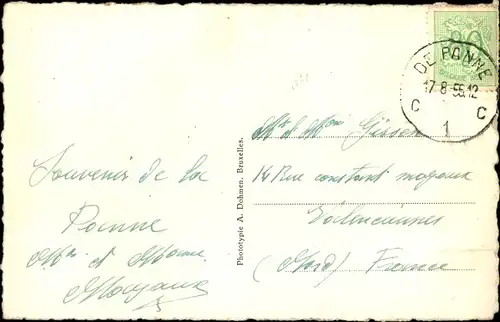 Souvenir de la
Panne
Mr et Mme
DE PANNE
17-8-55.12
C C
1
Phototypie A. Dohmen, Bruxelles.
Mr et Mme
14 Rue constant moyaux
Valenciennes
(Nord) France